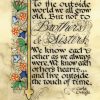 To the outside
world we all grow
old. But not to
Brothers
& Sisters.
We know each
other as we always
were. We know each
others hearts...
and live outside
the touch of time.